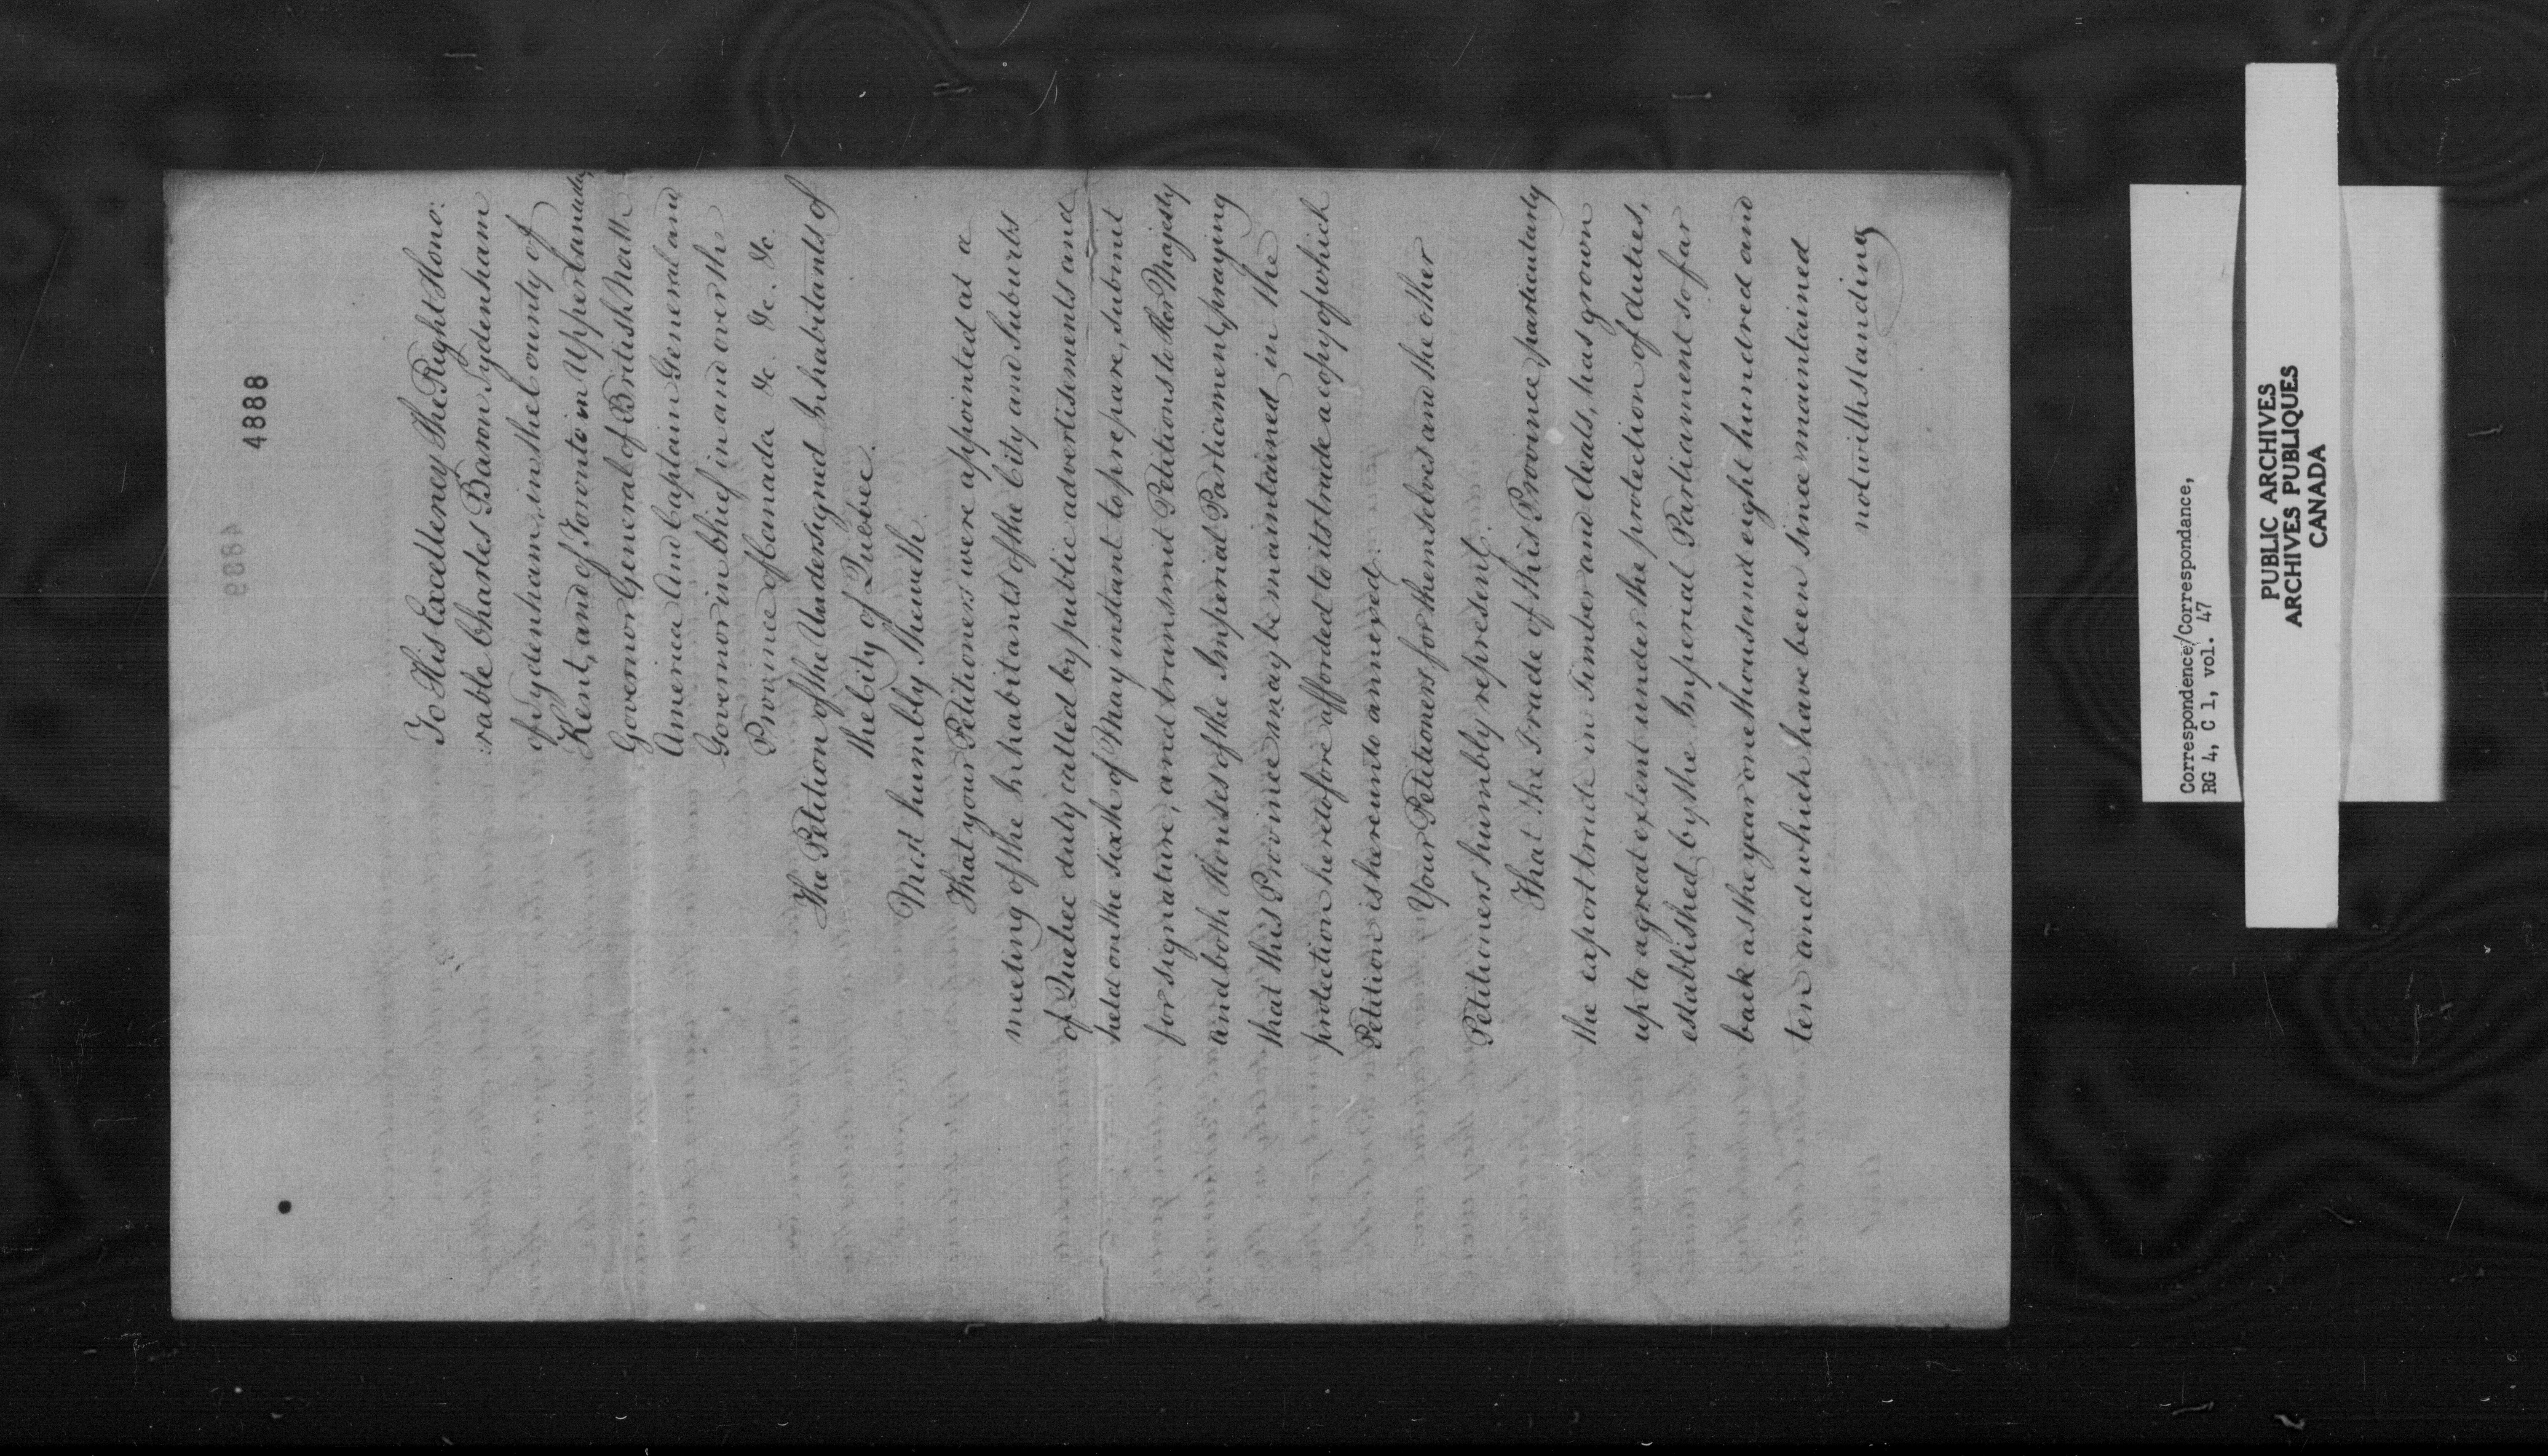 4888
To His Excellency The Right Hono:
:rable Charles Baron Sydenham
of Sydenham, in the County of
Kent, and of Toronto in Upper Canada,
Governor General of British North
America And Captain General and
Governor in Chief in and over the
Province of Canada &c &c. &c.
The Petition of the Undersigned Inhabitants of
the City of Quebec.
Most humbly Sheweth
That your Petitioners were appointed at a
meeting of the Inhabitants of the City and Suburbs
of Quebec duly called by public advertisements and
held on the sixth of May instant to prepare, submit
for signature, and transmit Petitions to Her Majesty
and both Houses of the Imperial Parliament, praying
that this Province may be maintained in the
protection heretofore afforded to its trade a copy of which
Petition is hereunto annexed.
Your Petitioners for themselves and the other
Petitioners humbly represent.
That the Trade of this Province, particularly
the export trade in Timber and deals, has grown
up to a great extent under the protection of duties,
established by the Imperial Parliament so far
back as the year one thousand eight hundred and
ten and which have been since maintained
notwithstanding
Correspondence/Correspondance,
RG 4, C 1, vol. 47
PUBLIC ARCHIVES
ARCHIVES PUBLIQUES
CANADA